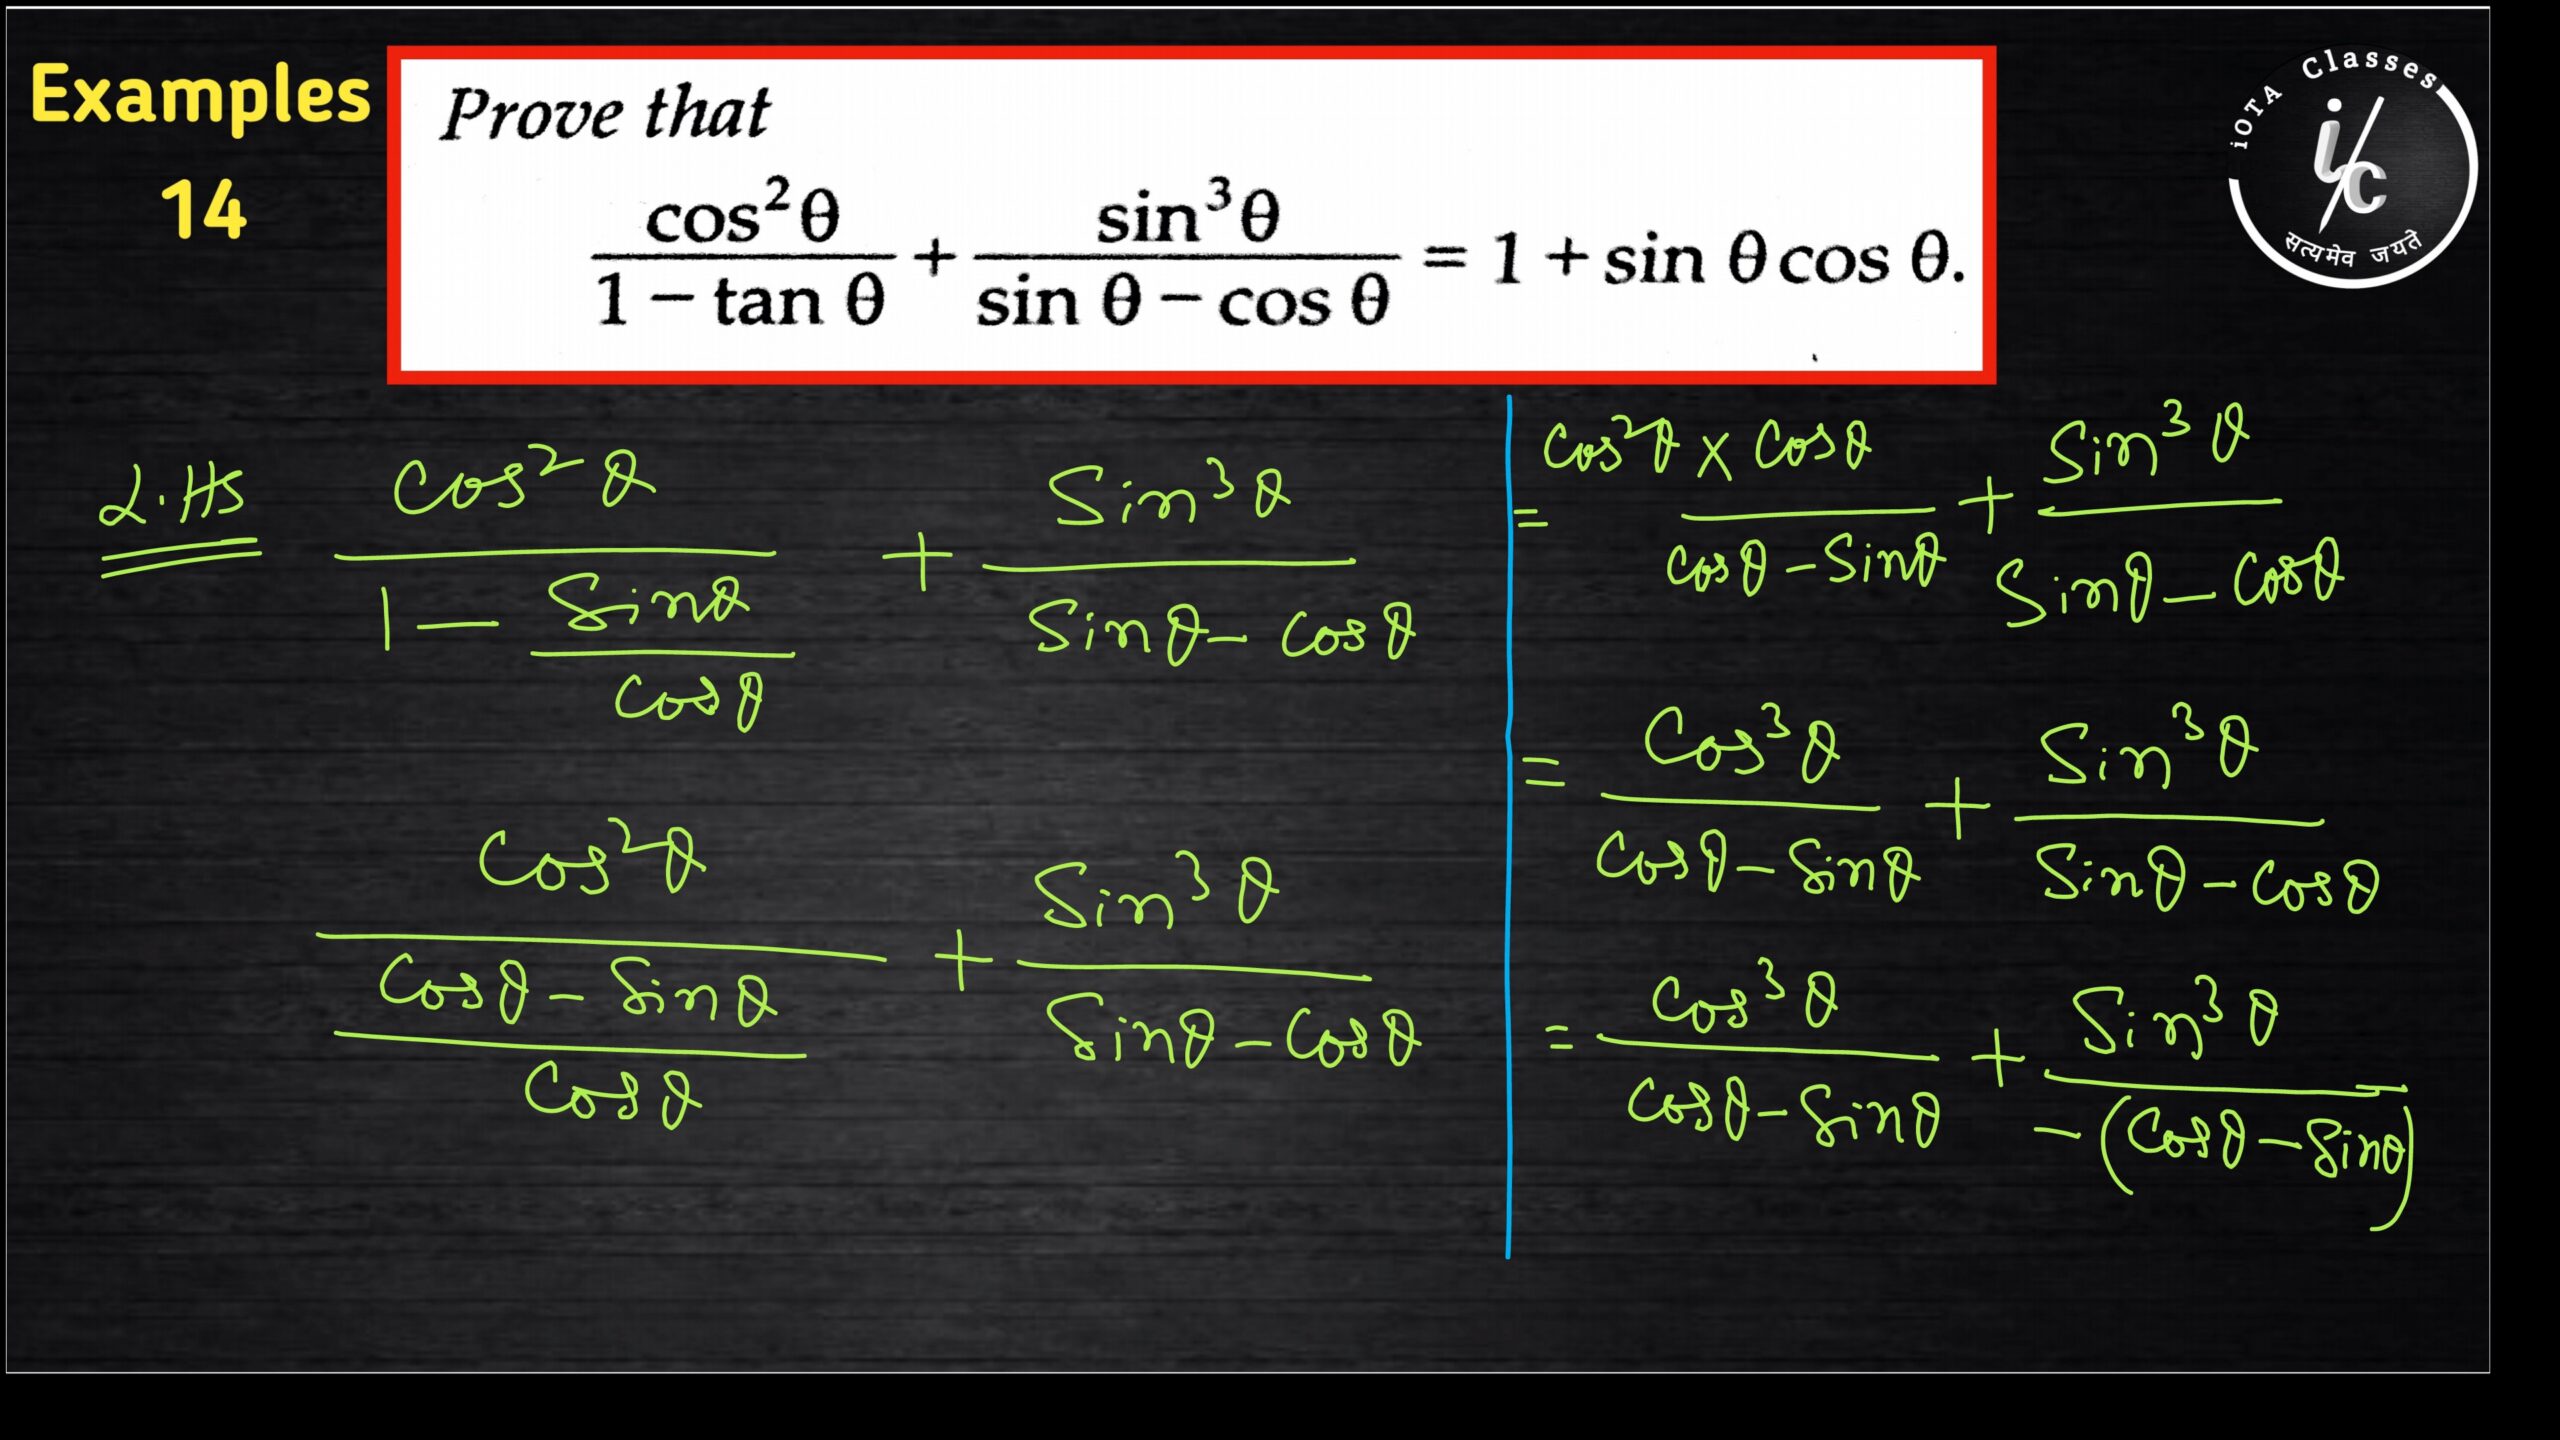 Examples
14
Prove that
cos²θ / (1 − tan θ) + sin³θ / (sin θ − cos θ) = 1 + sin θ cos θ.
iOTA Classes
i/c
सत्यमेव जयते
L.HS cos²θ / (1 − sinθ/cosθ) + Sin³θ / (Sinθ − cosθ)
cos²θ / ((cosθ − Sinθ)/cosθ) + Sin³θ / (Sinθ − cosθ)
= cos²θ × cosθ / (cosθ − Sinθ) + Sin³θ / (Sinθ − cosθ)
= cos³θ / (cosθ − Sinθ) + Sin³θ / (Sinθ − cosθ)
= cos³θ / (cosθ − Sinθ) + Sin³θ / −(cosθ − Sinθ)